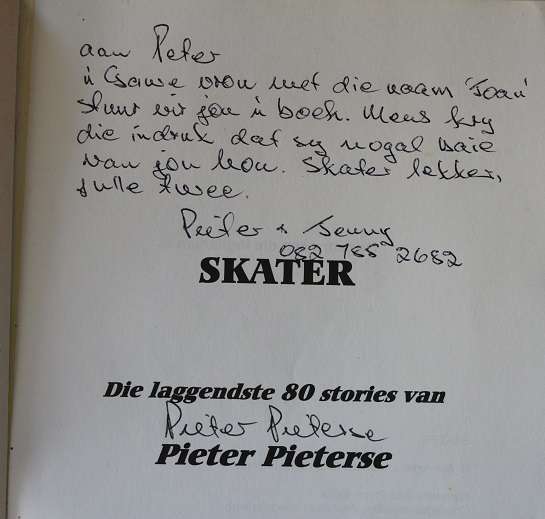 aan Peter
'n Gawe vrou met die naam 'Joan'
stuur vir jou 'n boek. Mens kry
die indruk dat sy nogal baie
van jou hou. Skater lekker,
julle twee.
Pieter + Jenny
082 785 2682
SKATER
Die laggendste 80 stories van
Pieter Pieterse
Pieter Pieterse